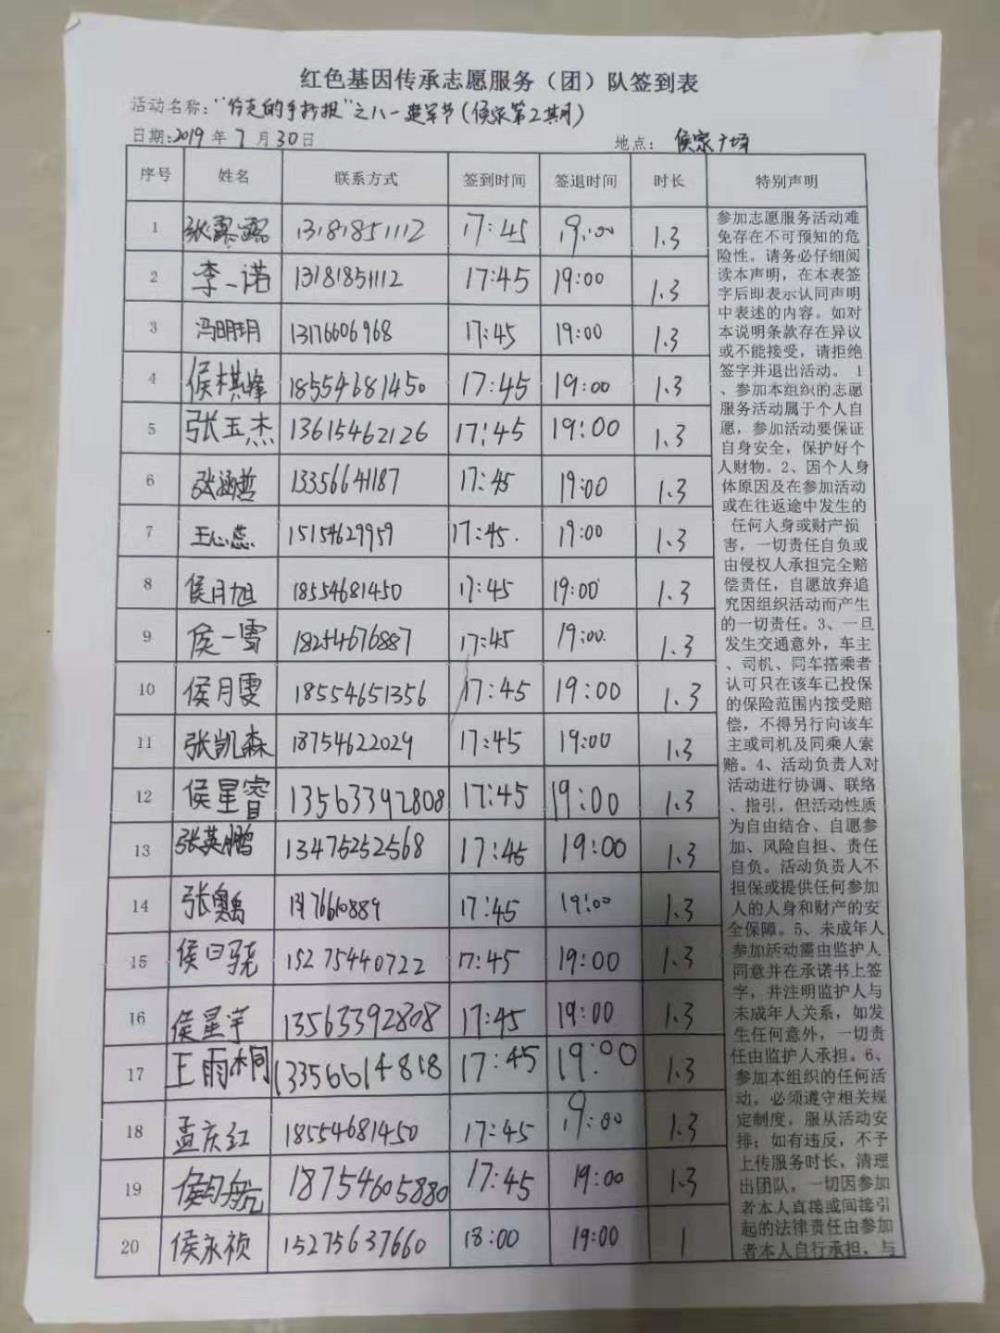 红色基因传承志愿服务（团）队签到表
活动名称："行走的手抄报"之八一建军节(侯家第2期)
日期:2019年7月30日 地点：侯家广场
序号 姓名 联系方式 签到时间 签退时间 时长 特别声明
1 张露露 13181851112 17:45 19:00 1.3
2 李一诺 13181851112 17:45 19:00 1.3
3 冯明玥 13176606968 17:45 19:00 1.3
4 侯棋峰 18554681450 17:45 19:00 1.3
5 张玉杰 13615462126 17:45 19:00 1.3
6 张涵哲 13356641187 17:45 19:00 1.3
7 王心蕊 15154629959 17:45. 19:00 1.3
8 侯月旭 18554681450 17:45 19:00 1.3
9 侯一雪 18254676887 17:45 19:00. 1.3
10 侯月雯 18554651356 17:45 19:00 1.3
11 张凯森 18754622029 17:45 19:00 1.3
12 侯星睿 13563392808 17:45 19:00 1.3
13 张英鹏 13475252568 17:45 19:00 1.3
14 17:45 19:00 1.3
15 15275440722 17:45 19:00 1.3
16 侯星宇 13563392808 17:45 19:00 1.3
17 王雨桐 13356614818 17:45 19:00 1.3
18 孟庆红 18554681450 17:45 19:00 1.3
19 侯钧航 18754605880 17:45 19:00 1.3
20 侯永祯 15275637660 18:00 19:00 1
参加志愿服务活动难
免存在不可预知的危
险性。请务必仔细阅
读本声明，在本表签
字后即表示认同声明
中表述的内容。如对
本说明条款存在异议
或不能接受，请拒绝
签字并退出活动。 1
、参加本组织的志愿
服务活动属于个人自
愿，参加活动要保证
自身安全，保护好个
人财物。2、因个人身
体原因及在参加活动
或在往返途中发生的
任何人身或财产损
害，一切责任自负或
由侵权人承担完全赔
偿责任，自愿放弃追
究因组织活动而产生
的一切责任。3、一旦
发生交通意外，车主
、司机、同车搭乘者
认可只在该车已投保
的保险范围内接受赔
偿，不得另行向该车
主或司机及同乘人索
赔。4、活动负责人对
活动进行协调、联络
、指引，但活动性质
为自由结合、自愿参
加、风险自担、责任
自负。活动负责人不
担保或提供任何参加
人的人身和财产的安
全保障。5、未成年人
参加活动需由监护人
同意并在承诺书上签
字，并注明监护人与
未成年人关系，如发
生任何意外，一切责
任由监护人承担。6、
参加本组织的任何活
动，必须遵守相关规
定制度，服从活动安
排；如有违反，不予
上传服务时长，清理
出团队，一切因参加
者本人直接或间接引
起的法律责任由参加
者本人自行承担，与